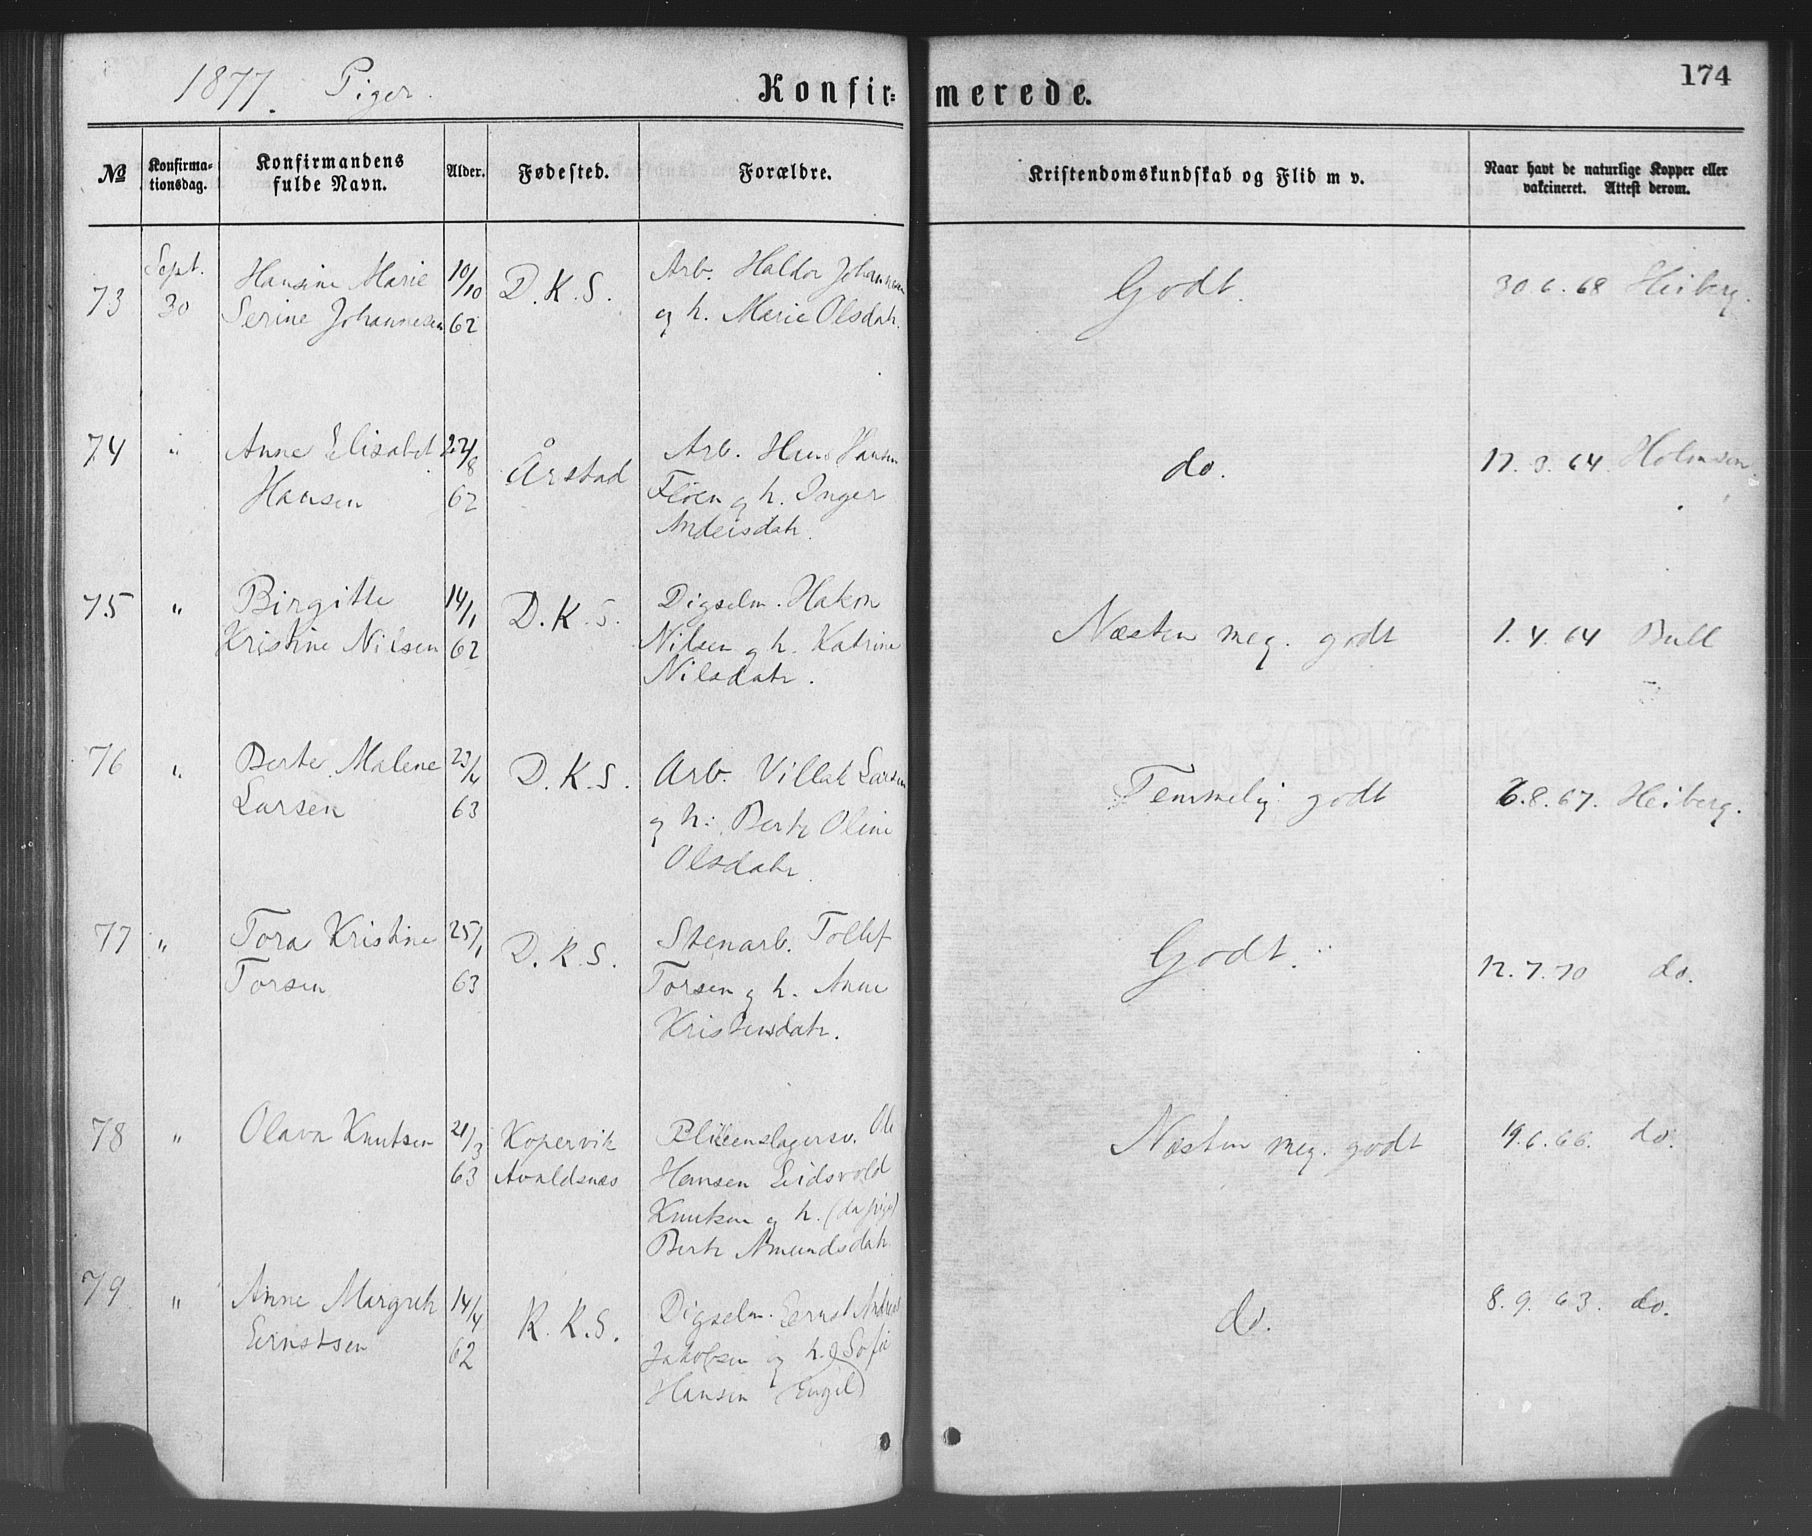 1877. Piger.
Konfirmerede.
174
№
Konfirmationsdag.
Konfirmandens fulde Navn.
Alder.
Fødested.
Forældre.
Kristendomskundskab og Flid m v.
Naar havt de naturlige Kopper eller vakcineret. Attest derom.
73
Sept. 30
Hansine Marie
Serine Johannesen
10/10 62
D. K. S.
Arb. Haldor Johannesen
og h. Marie Olsdatr.
Godt.
30 6. 68 Heiberg.
74
"
Anne Elisabet
Hansen
22/8 62
Årstad
Arb. Hans Hansen
Fløen og h. Inger
Andersdatr.
do.
64 Holmsen.
75
"
Birgitte
Kristine Nilsen
14/1 62
D. K. S.
Digselm. Hakon
Nilsen og h. Katrine
Nilsdatr.
Næsten meg. godt
1. 4. 64 Bull
76
"
Berte Malene
Larsen
23/4 63
D. K. S.
Arb. Villak Larsen
og h. Berte Oline
Olsdatr.
Temmelig godt
6. 8. 67. Heiberg.
77
"
Tora Kristine
Torsen
25/1 63
D. K. S.
Stenarb. Tollef
Torsen og h. Anne
Kristensdatr.
Godt.
12. 7. 70 do.
78
"
Olava Knutsen
21/3 63
Kopervik
Avaldsnæs
Blikkenslagersv. Ole
Hansen Eidsvold
Knutsen og h. (da pige)
Berte Amundsdatr.
Næsten meg. godt
19. 6. 66. do.
79
"
Anne Margreth
Ernstsen
14/4 62
K. K. S.
Digselm. Ernst Andreas
Jakobsen og h. Sofie
Hansen (Engel)
do.
8. 9. 63. do.